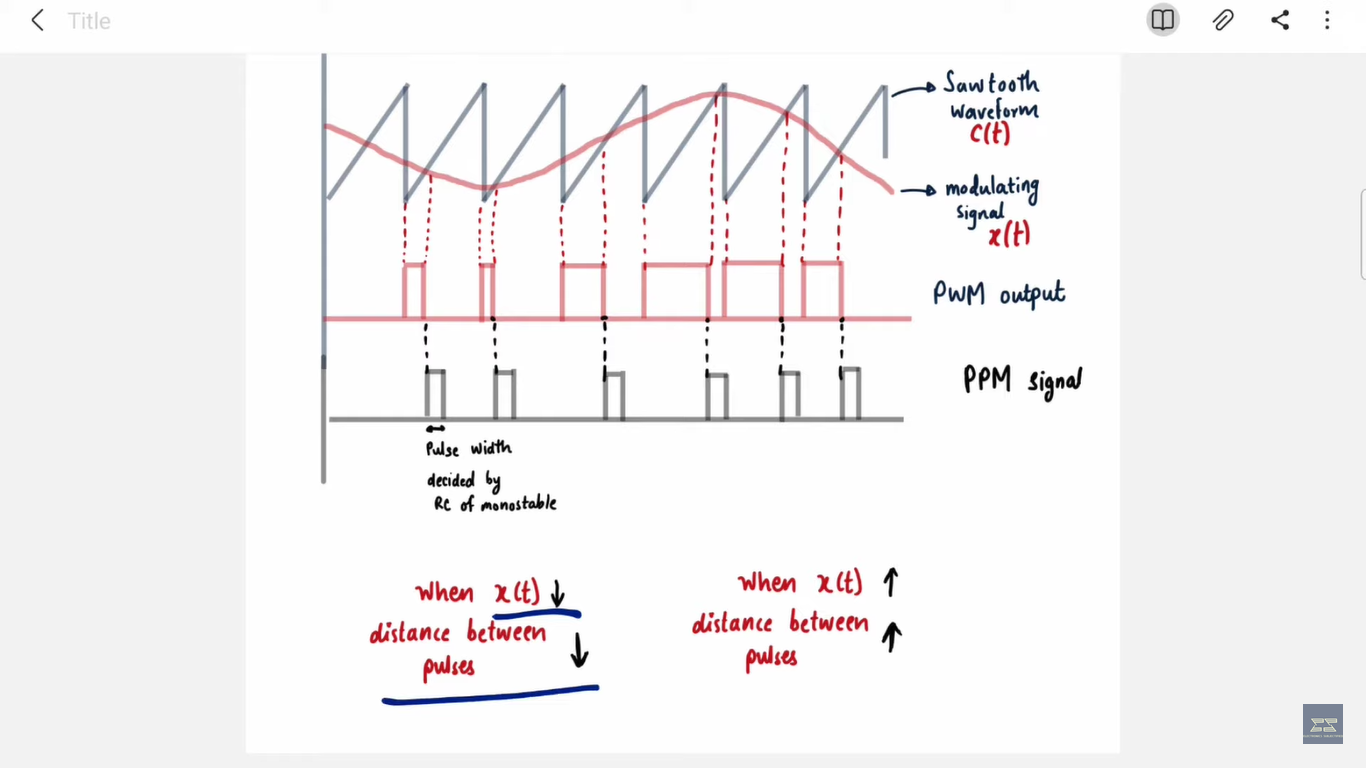 Title
Sawtooth
waveform
c(t)
modulating
signal
x(t)
PWM output
PPM signal
Pulse width
decided by
RC of monostable
When x(t) ↓
distance between
pulses ↓
When x(t) ↑
distance between ↑
pulses